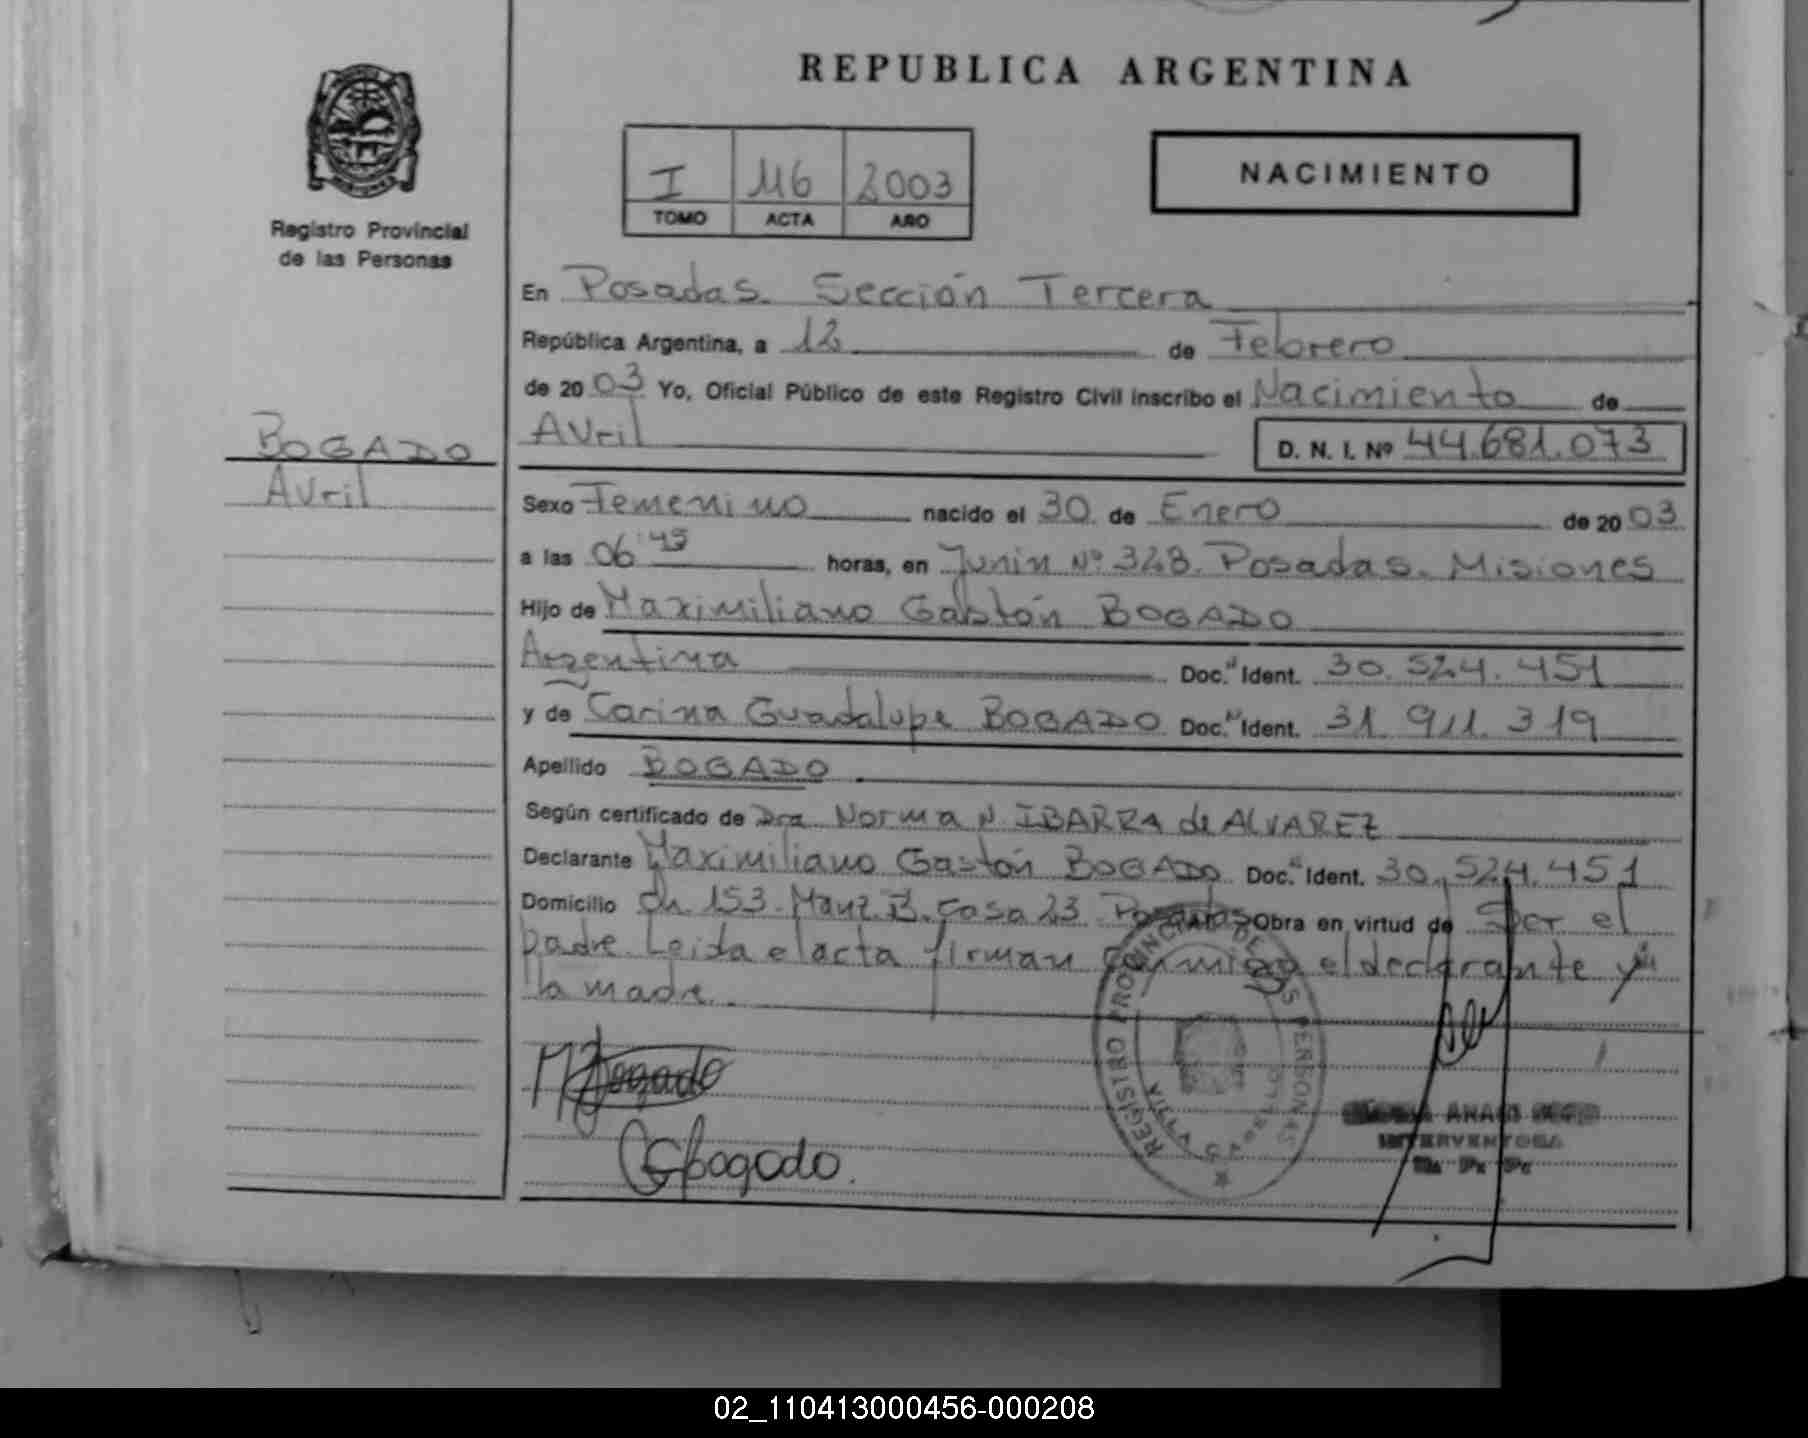 REPUBLICA ARGENTINA
Registro Provincial
de las Personas
I 116 2003
TOMO ACTA AÑO
NACIMIENTO
BOGADO
Avril
En Posadas. Sección Tercera
República Argentina, a 12 de Febrero
de 20 03 Yo, Oficial Público de este Registro Civil inscribo el Nacimiento de
Avril D. N. I. Nº 44.681.073
Sexo Femenino nacido el 30 de Enero de 20 03
a las 06:45 horas, en Junin Nº 328. Posadas. Misiones
Hijo de Maximiliano Gastón BOGADO
Argentina Doc. Ident. 30.524.451
y de Carina Guadalupe BOGADO Doc. Ident. 31.911.319
Apellido BOGADO
Según certificado de Dra Norma N IBARRA de ALVAREZ
Declarante Maximiliano Gastón BOGADO Doc. Ident. 30.524.451
Domicilio Ch. 153. Manz. B. Casa 23. Posadas Obra en virtud de Ser el
padre. Leida el acta firman conmigo el declarante y
la madre.
Bogado
Bogado.
REGISTRO PROVINCIAL DE LAS PERSONAS
VILLA
INTERVENTORA
02_110413000456-000208